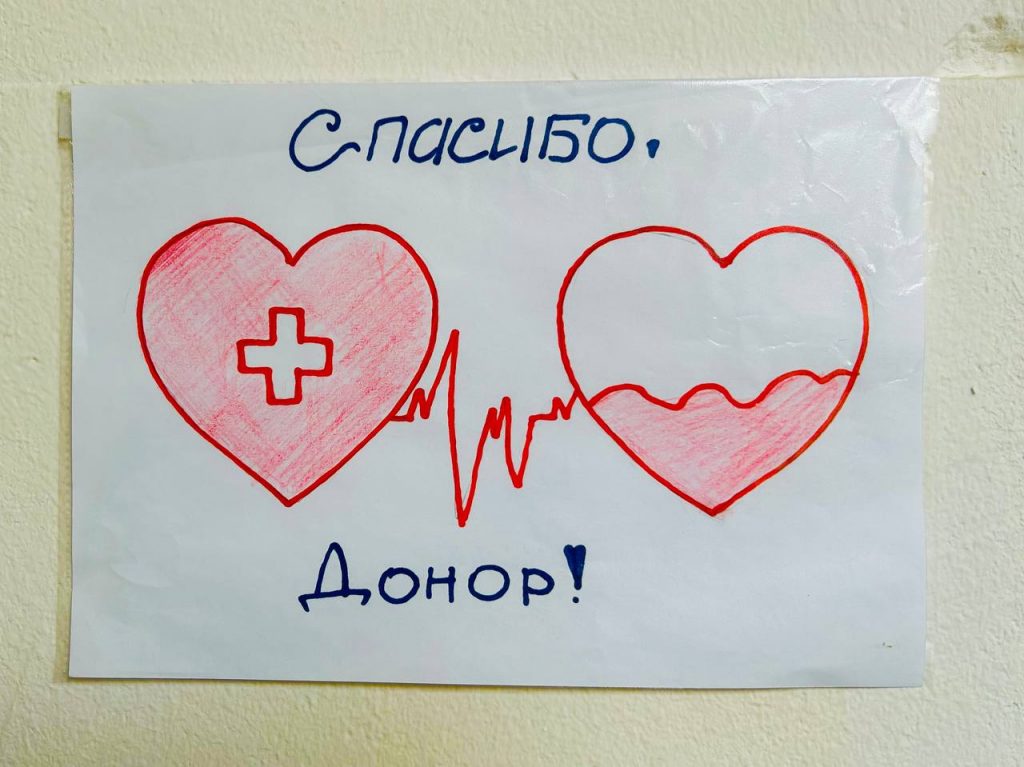 Спасибо,
Донор!